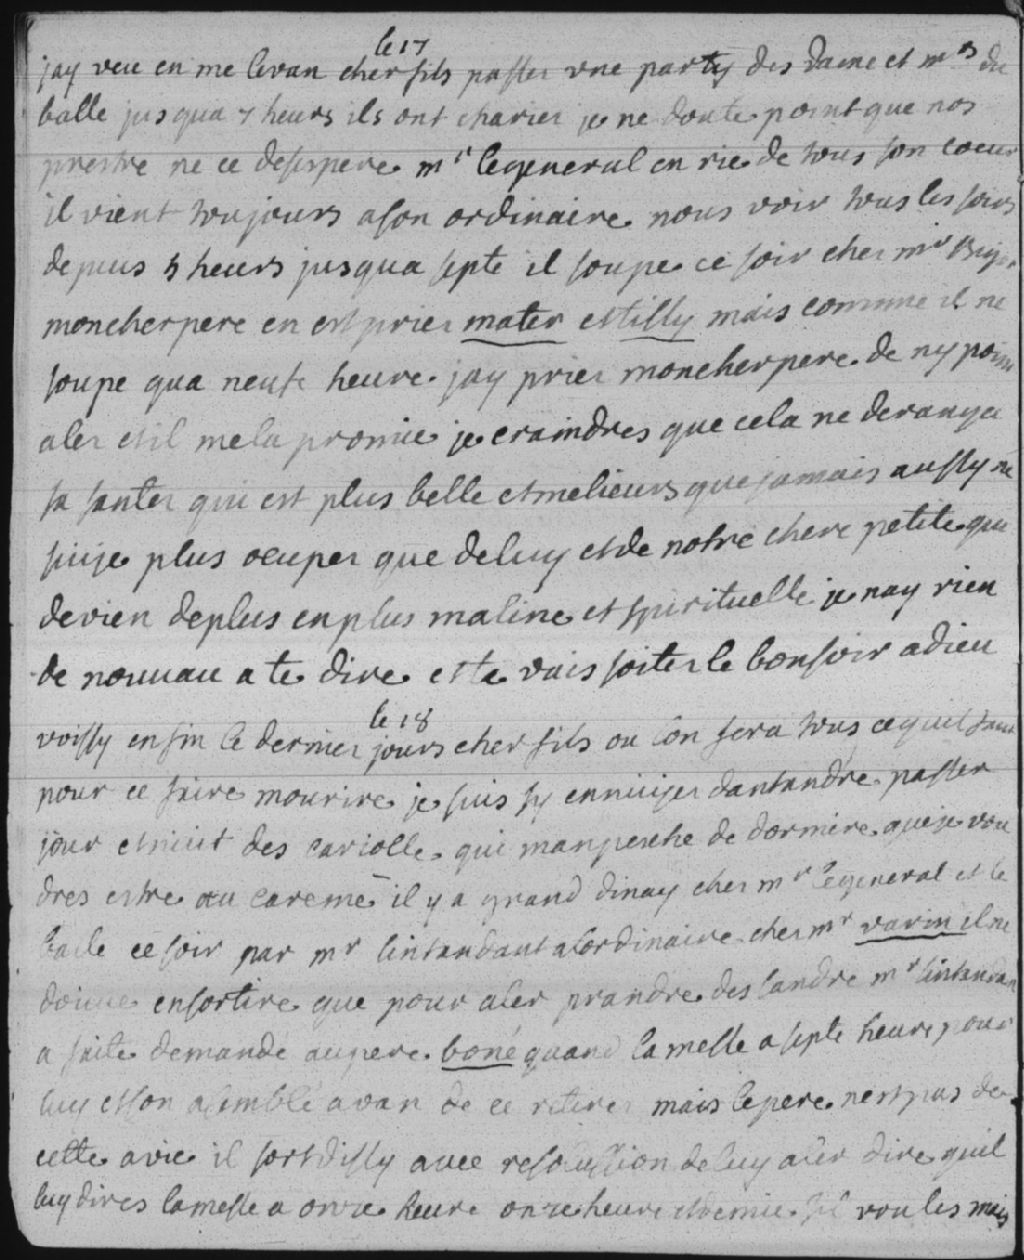 le 17
jay veu en me levan cher fils passer vne party des dame et mrs du
balle jusqua 7 heurs ils ont charier je ne doute point que nos
prestre ne ce desespere mr legeneral en rie de tous son coeur
il vient toujours ason ordinaire nous voir tous les soirs
depuis 5 heurs jusqua septe il soupe ce soir cher mr
moncherpere en est prier mater et tilly mais comme il ne
soupe qua neufe heure jay prier moncherpere de ny poin
aler et il mela promie je craindres que cela ne derange
sa santer qui est plus belle et melieurs que jamais aussy ne
suije plus ocuper que deluy et de notre chere petite qui
devien deplus enplus maline et spirituelle je nay rien
de nouuau a te dire et te vais soiter le bonsoir adieu
le 18
voissy enfin le dernier jours cher fils ou lon fera tous cequil faut
pour ce faire mourire je suis sy ennuiyer dantandre passer
jour et nuit des cariolle qui manpesche de dormire queje vou
dres estre au careme il y a grand dinay cher mr legeneral et le
baile ce soir par mr lintandant alordinaire cher mr varin il ne
doiuue ensortire que pour aler prandre des sandre mr lintandan
a faite demande aupere boné quand la messe a septe heure pour
luy et son asemblé avan de ce retirer mais lepere nest pas de
cette avie il sort dissy avec resolussion deluy aler dire quil
luy dires lamesse a onze heure onze heure et demie sil voules mais